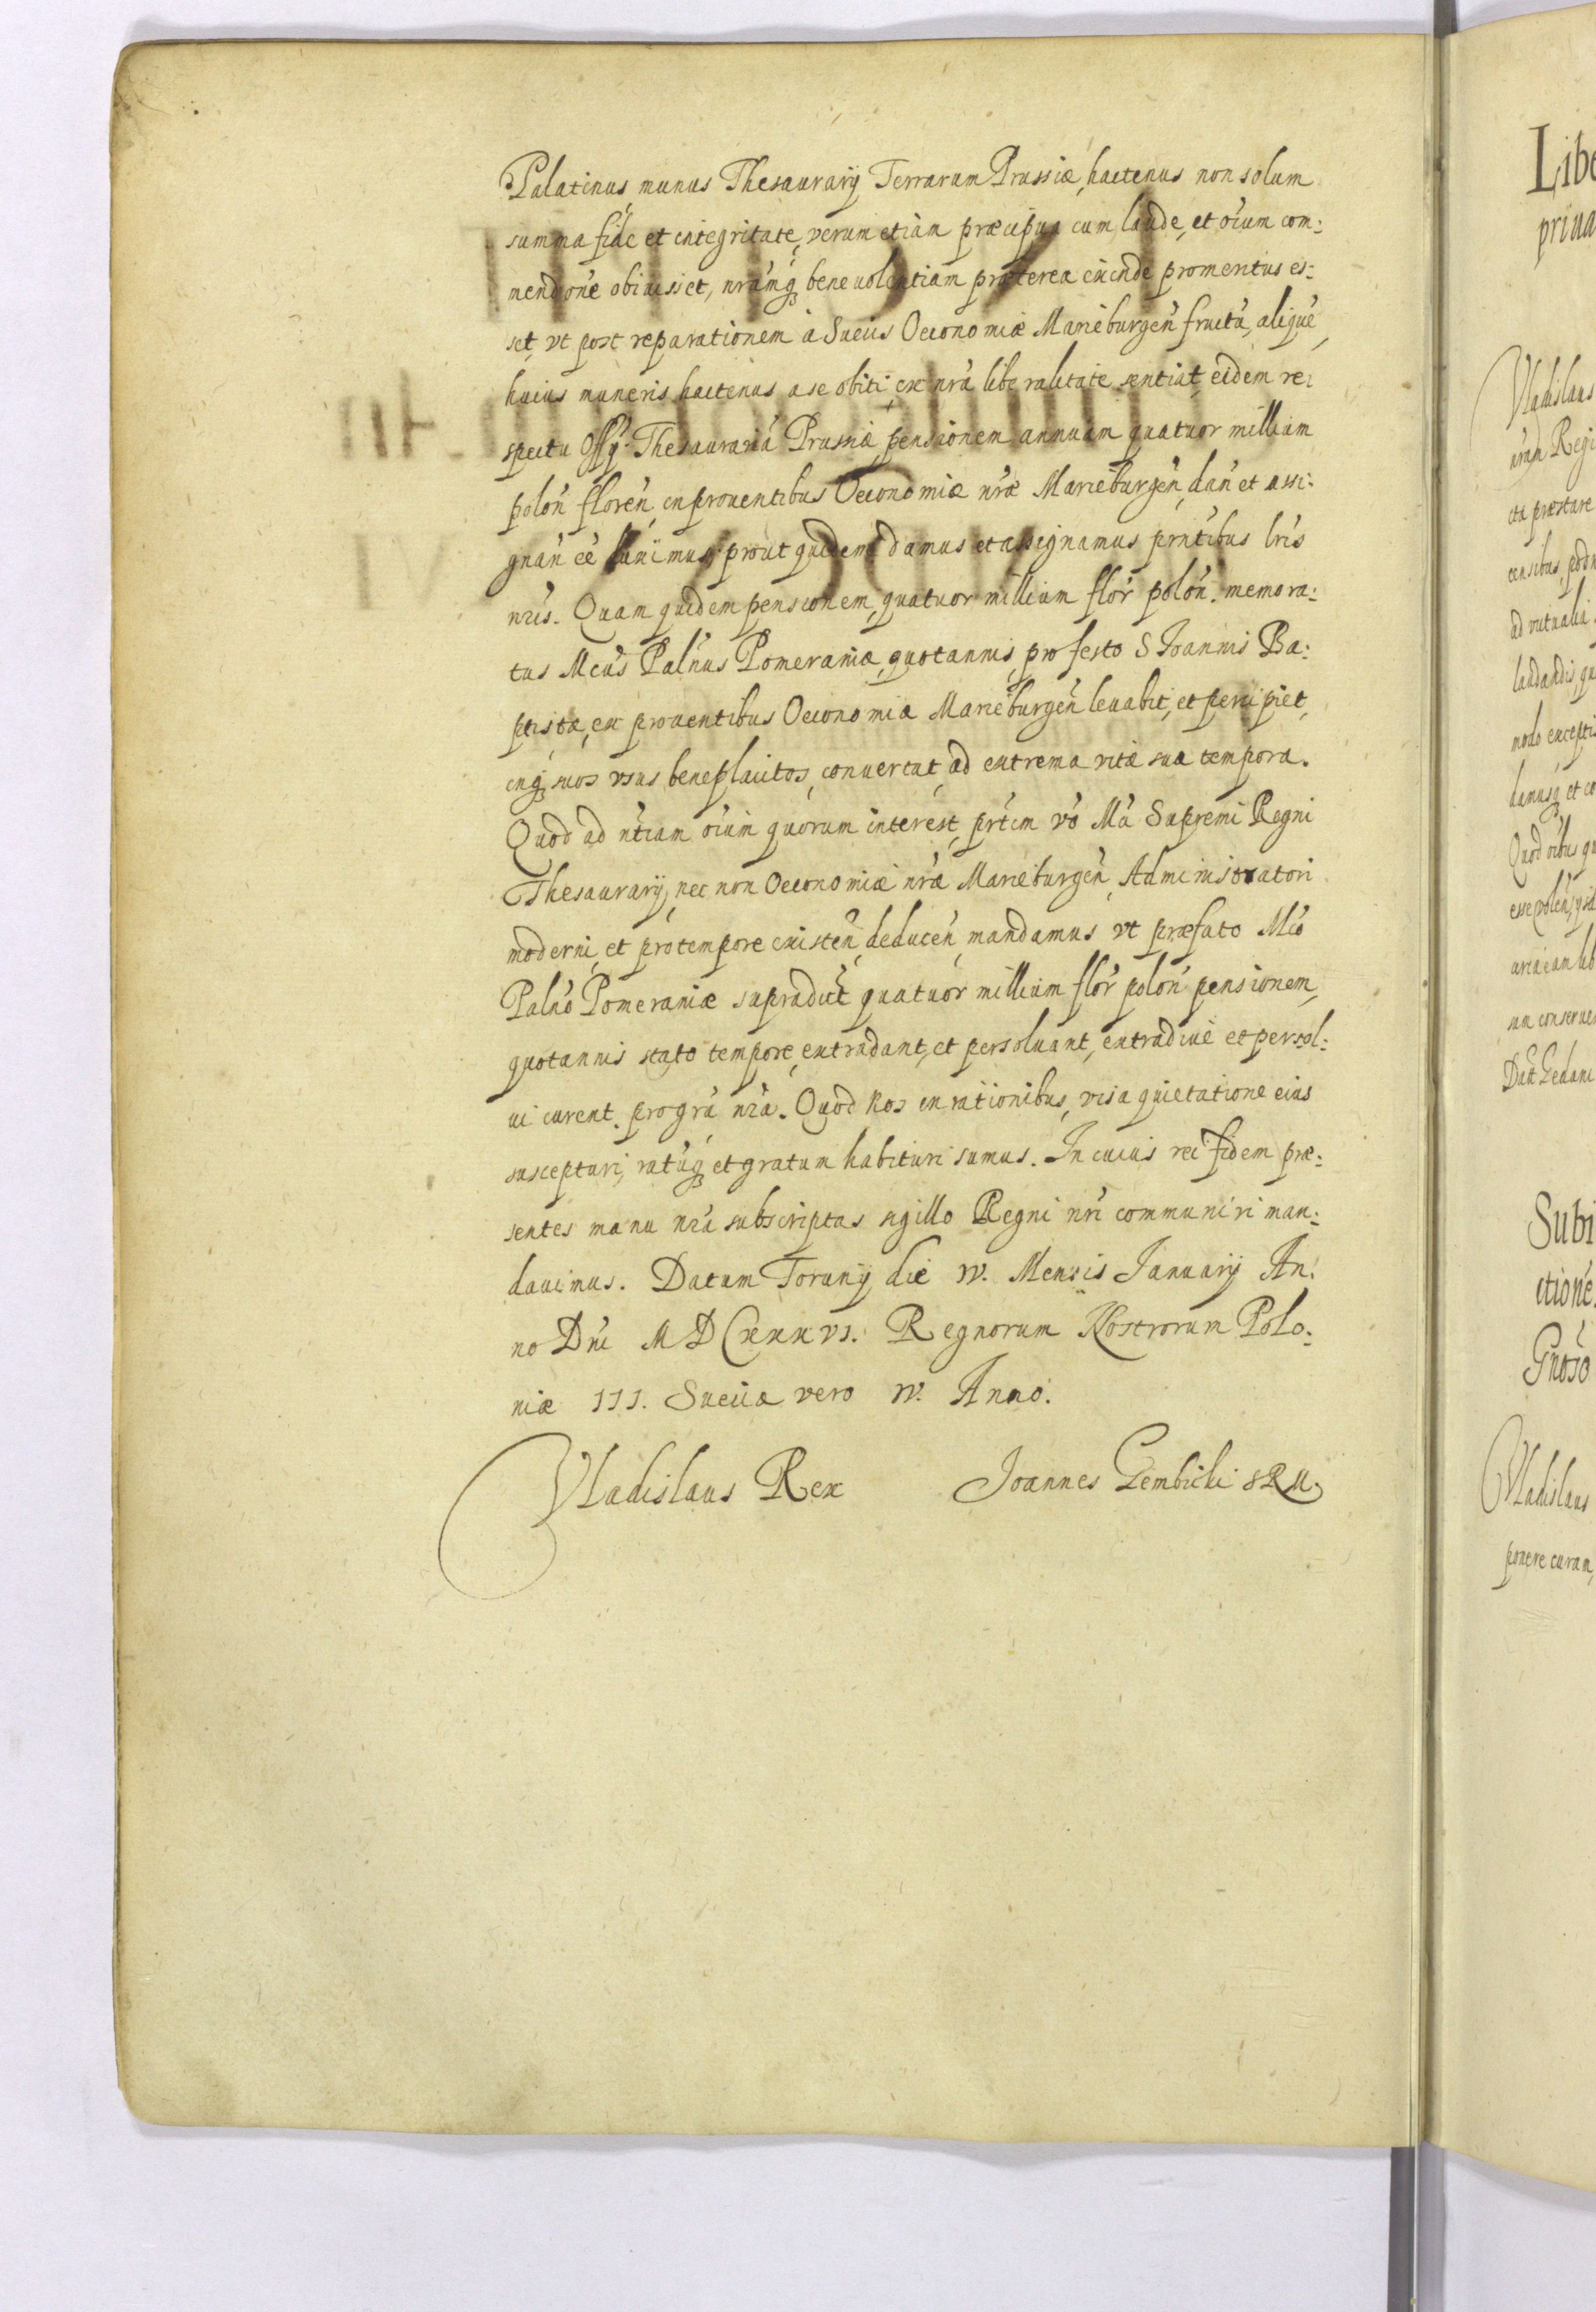 Palatinus, munus Thesaurarij Terrarum Prussiæ, hactenus non solum
summa fide et integritate, verum etiam præcipua cum laude, et oium com:
mendone obiuisset, nramq; beneuolentiam præterea exinde promeritus es:
set, vt post reparationem à Suecis Oeconomiæ Marieburgen fructu, alique,
huius muneris hactenus a se obiti, ex nra liberalitate sentiat, eidem re:
spectu Offij Thesaurariá Prussiæ, pensionem annuam quatuor millium
polon floren, in prouentibus Oeconomiæ nræ Marieburgen, dan et assi:
gnan eé, prout quidem damus et assignamus pntibus lris
nris. Quam quidem pensionem, quatuor millium flor polon. memora:
tus Mcus Palnus Pomeraniæ, quotannis, pro festo S Joannis Ba:
ptistæ, ex prouentibus Oeconomiæ Marieburgen leuabit, et percipiet,
inq; suos vsus beneplacitos, conuertat, ad extrema vitæ suæ tempora.
Quod ad ntiam oium quorum interest, prtim vo Ma Supremi Regni
Thesaurarij, nec non Oeconomiæ nræ Marieburgen, Administratori
moderni, et pro tempore existen, deducen, mandamus vt præfato Mco
Palno Pomeraniæ supradict quatuor millium flor polon pensionem,
quotannis stato tempore, extradant, et persoluant, extradiue et persol:
ui curent. pro gra nra. Quod Nos in rationibus, visa quietatione eius
suscepturi, ratuq; et gratum habituri sumus. In cuius rei fidem præ:
sentes manu nra subscriptas sigillo Regni nri communiri man:
dauimus. Datum Torunij die IV. Mensis Januarij An:
no Dni MDCXXXVI. Regnorum Nostrorum Polo:
niæ III. Sueciæ vero IV. Anno.
Vladislaus Rex Joannes Gembicki SRM
Vladislaus
nram Regi
præstare
censibus
ad
modo excepti
Quod oibus
Subi
itione
Gnoso
Vladislaus
ponere curam,